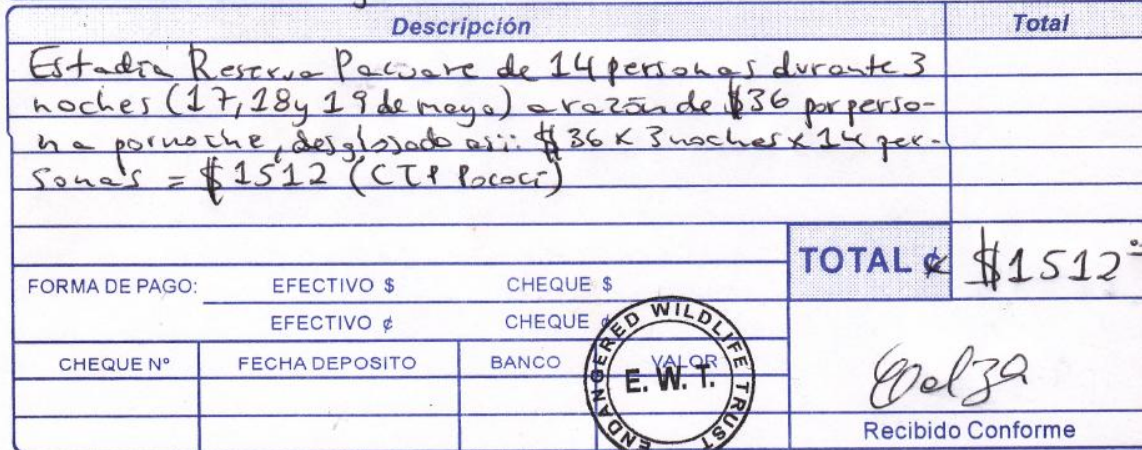 Descripción Total
Estadía Reserva Pacuare de 14 personas durante 3
noches (17, 18 y 19 de mayo) a razón de $36 por perso-
na por noche, desglosado asi: $36 x 3 noches x 14 per-
sonas = $1512 (CTP Pococí)
TOTAL ¢ $1512
FORMA DE PAGO: EFECTIVO $ CHEQUE $
EFECTIVO ¢ CHEQUE ¢
CHEQUE Nº FECHA DEPOSITO BANCO VALOR
ENDANGERED WILDLIFE TRUST
E. W. T.
Recibido Conforme